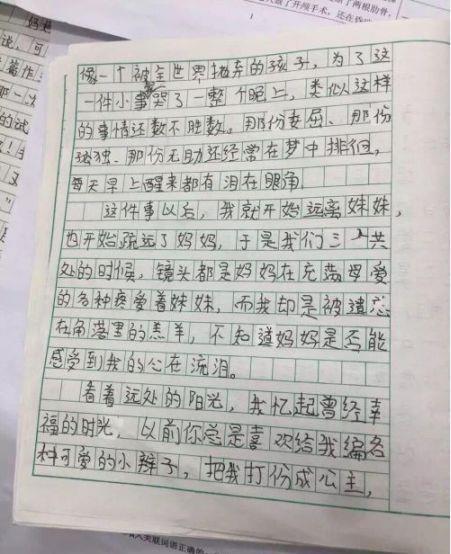 了开颅手术，还在
了两根肋骨，
像一个被全世界抛弃的孩子，为了这
一件小事哭了一整个晚上，类似这样
的事情还数不胜数。那份委屈、那份
孤独、那份无助还经常在梦中排徊，
每天早上醒来都有泪在眼角
这件事以后，我就开始远离妹妹，
也开始疏远了妈妈，于是我们三人共
处的时候，镜头都是妈妈在充满母爱
的各种疼爱着妹妹，而我却是被遗忘
在角落里的羔羊，不知道妈妈是否能
感受到我的心在流泪。
看着远处的阳光，我忆起曾经幸
福的时光，以前你总是喜欢给我编各
种可爱的小辫子，把我打份成公主，
关联词语正确的